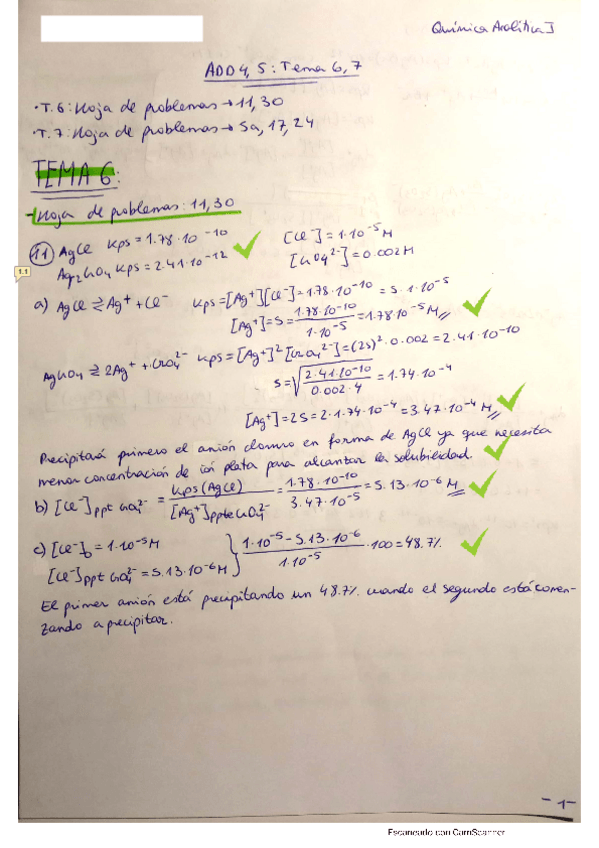 Química Analítica I
ADD 4, 5: Tema 6, 7
· T. 6: Hoja de problemas → 11, 30
· T. 7: Hoja de problemas → 5a, 17, 24
TEMA 6:
- Hoja de problemas: 11, 30
1.1
11 AgCl Kps = 1.78·10⁻¹⁰ [Cl⁻] = 1·10⁻⁵ M
Ag₂CrO₄ Kps = 2.41·10⁻¹² [CrO₄²⁻] = 0.002 M
a) AgCl ⇄ Ag⁺ + Cl⁻ Kps = [Ag⁺][Cl⁻] = 1.78·10⁻¹⁰ = s·1·10⁻⁵
[Ag⁺] = s = 1.78·10⁻¹⁰ / 1·10⁻⁵ = 1.78·10⁻⁵ M
AgCrO₄ ⇄ 2Ag⁺ + CrO₄²⁻ Kps = [Ag⁺]² [CrO₄²⁻] = (2s)²·0.002 = 2.41·10⁻¹⁰
s = √(2.41·10⁻¹⁰ / 0.002·4) = 1.74·10⁻⁴
[Ag⁺] = 2s = 2·1.74·10⁻⁴ = 3.47·10⁻⁴ M
Precipitará primero el anión cloruro en forma de AgCl ya que necesita
menor concentración de ión plata para alcanzar la solubilidad.
b) [Cl⁻]ppt CrO₄²⁻ = Kps (AgCl) / [Ag⁺]ppte CrO₄²⁻ = 1.78·10⁻¹⁰ / 3.47·10⁻⁵ = 5.13·10⁻⁶ M
c) [Cl⁻]₀ = 1·10⁻⁵ M
[Cl⁻]ppt CrO₄²⁻ = 5.13·10⁻⁶ M } 1·10⁻⁵ - 5.13·10⁻⁶ / 1·10⁻⁵ ·100 = 48.7%
El primer anión está precipitando un 48.7% cuando el segundo está comen-
zando a precipitar.
-1-
Escaneado con CamScanner